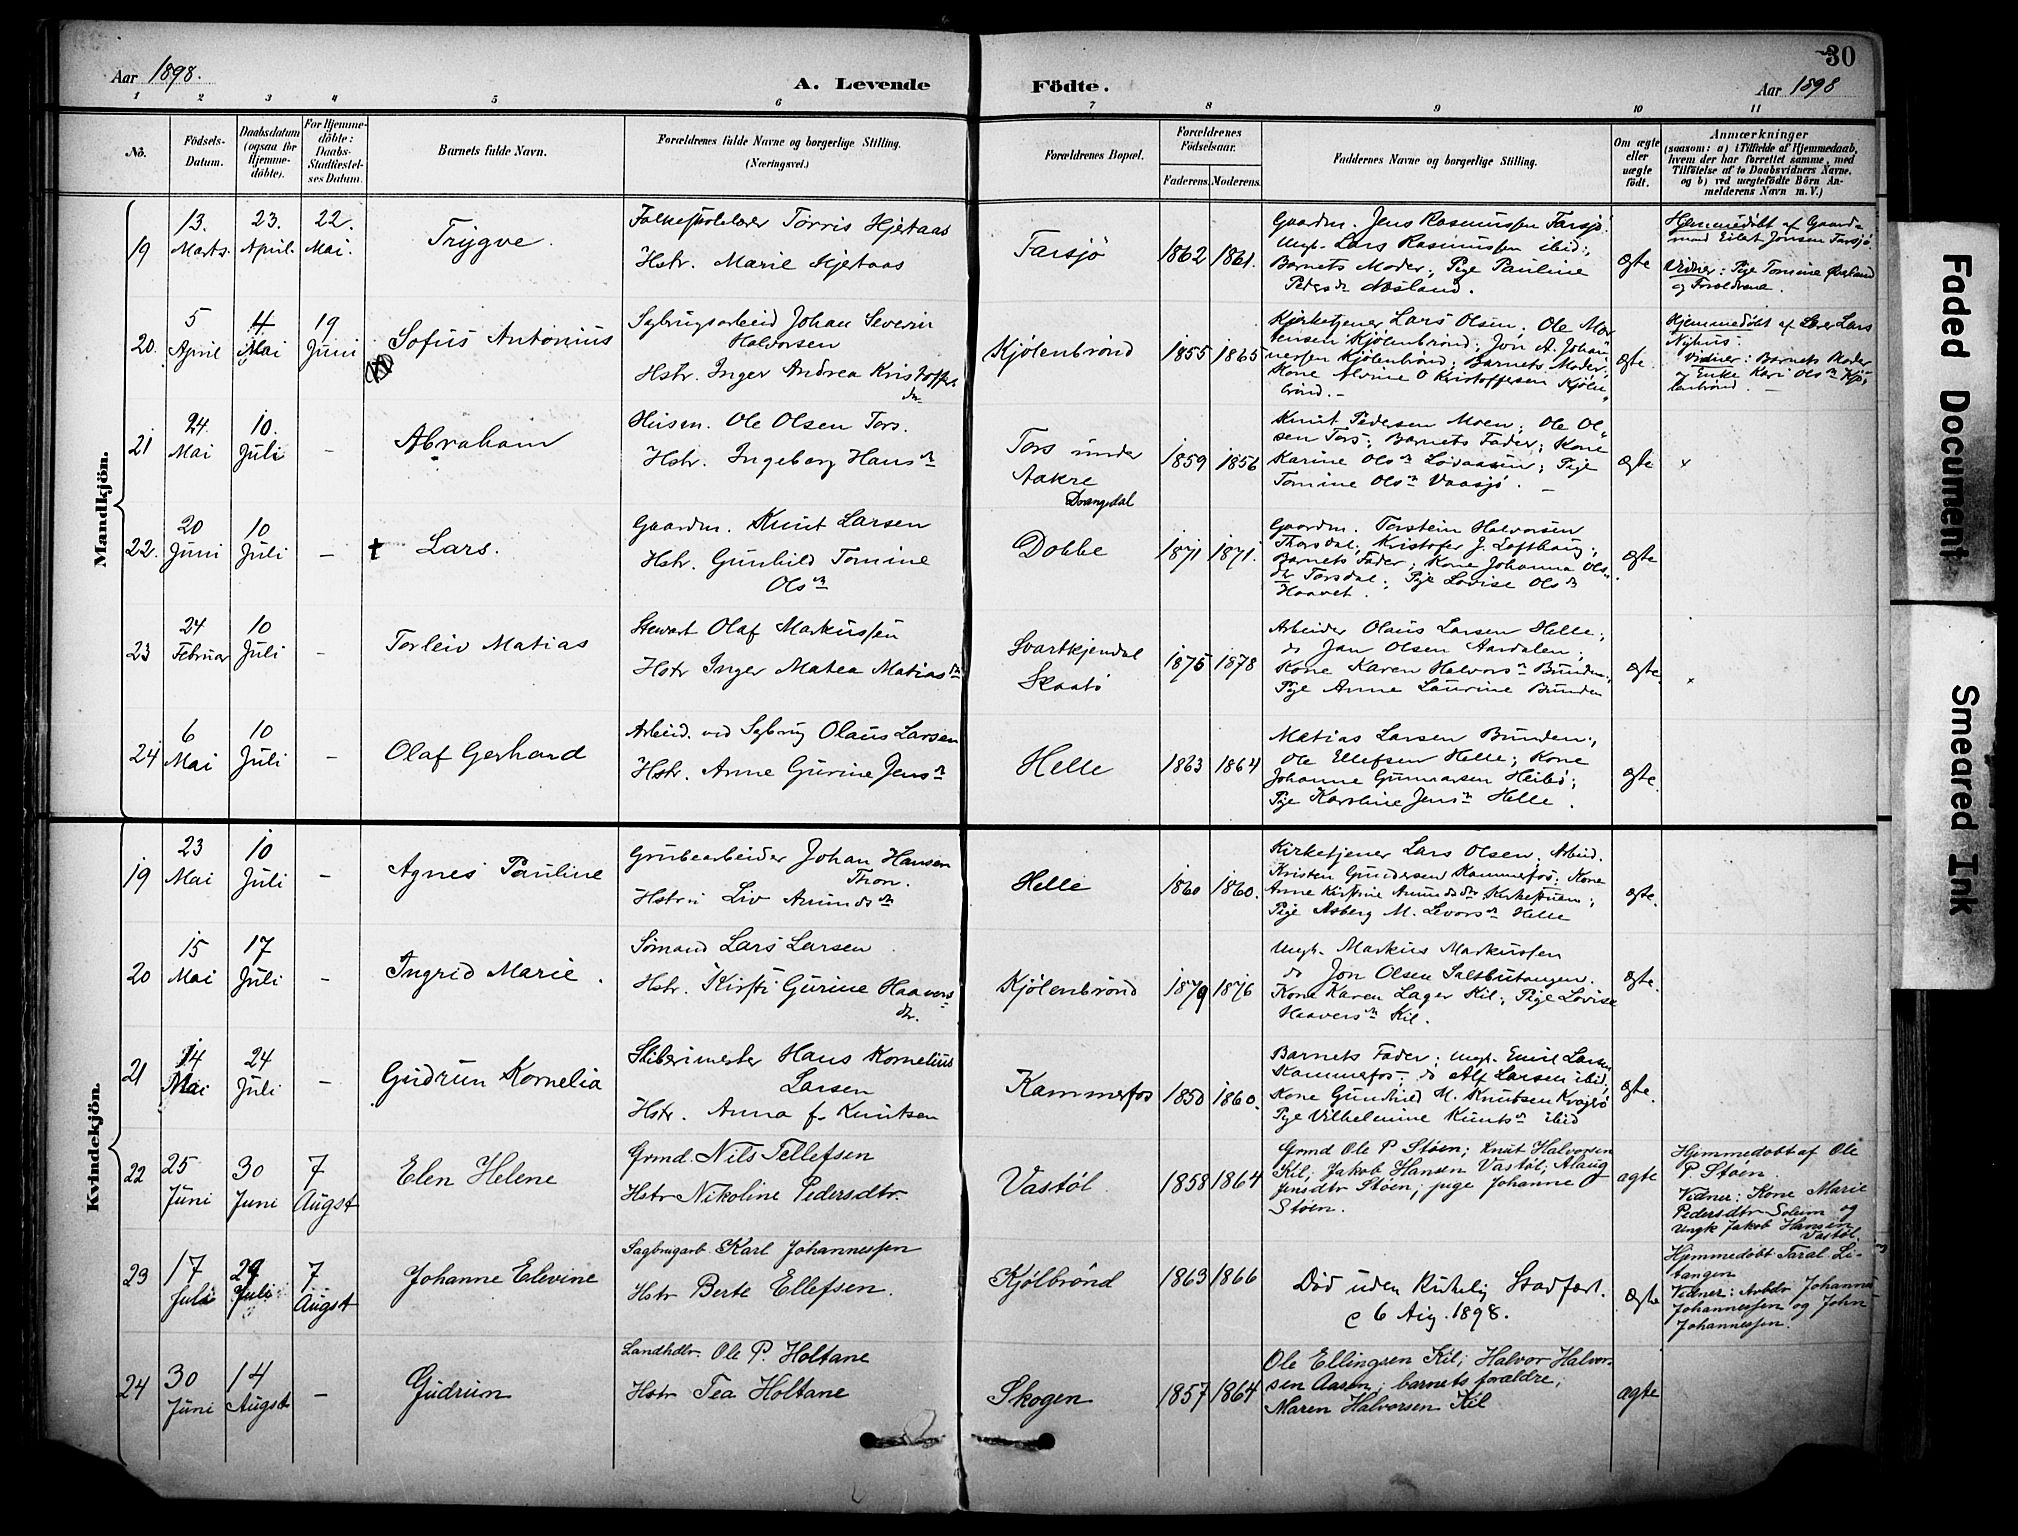 30
Aar 1898.
A. Levende
Födte.
Aar 1898
1 2 3 4 5 6 7 8 9 10 11
No.
Födsels-Datum.
Daabsdatum (ogsaa for Hjemme-döbte).
For Hjemme-döbte: Daabs-Stadfæstel-ses Datum.
Barnets fulde Navn.
Forældrenes fulde Navne og borgerlige Stilling. (Næringsvei.)
Forældrenes Bopæl.
Forældrenes Födselsaar.
Faderens. Moderens.
Faddernes Navne og borgerlige Stilling.
Om ægte eller uægte födt.
Anmærkninger
(saasom: a) i Tilfælde af Hjemmedaab, hvem der har forrettet samme, med Tilföielse af to Daabsvidners Navne. og b) ved uægtefödte Börn An-melderens Navn m. V.)
Mandkjön.
19
13. Marts.
23. April.
22. Mai.
Trygve.
Folkeskolelærer Tørris Hjetaas
Hstr. Marie Hjetaas
Farsjø
1862 1861.
Gaardm. Jens Rasmussen Farsjø.
Ungk. Lars Rasmussen ibid;
Barnets Moder; Pige Pauline
Pedersdr Næsland.
ægte
Hjemmedøbt af Gaard-
mand Eilet Jonsen Farsjø.
Vidner: Pige Tomine
og Forældrene.
20.
5 April
4 Mai
19 Juni
Sofus Antonius
Sagbrugsarbeid Johan Severin
Halvorsen
Hstr. Inger Andrea Kristoffers
dr.
Kjølenbrønd
1855 1865
Kirketjener Lars Olsen. Ole Mor
tensen Kjølenbrønd; Jon A. Johan
nessen Kjølenbrønd; Barnets Moder,
Kone Alvine O Kristoffersen Kjølen
brønd.-
ægte.
Hjemmedøbt af Lærer Lars
Nyhus.
Vidner: Barnets Moder
og Enke Kari Olsdr Kjø-
lenbrønd
21
24. Mai
10. Juli
-
Abraham
Huisen. Ole Olsen Tors.
Hstr. Ingeborg Hansdr
Tors under
Aakre
Drangedal
1859 1856
Knut Pedersen Moen; Ole Ol
sen Tors; Barnets Fader; Kone
Karine Olsdr Lovaasen; Pige
Tomine Olsdr Vaasjø.
ægte
x
22.
20 Juni
10 Juli
-
† Lars.
Gaardm. Knut Larsen
Hstr. Gunhild Tomine
Olsdr
Dobbe
1871 1871.
Gaardm. Torstein Halvorsen
Thorsdal; Kristofer J. Lofthaug;
Barnets Fader; Kone Johanna Ols
dr Torsdal; Pige Lovise Olsdr
Haavet.
ægte.
23
24 Februar
10 Juli
-
Torleiv Matias
Stewart Olaf Markussen
Hstr Inger Matea Matiasdr
Svartkjendal
Skaatø
1875 1878
Arbeider Olaus Larsen Helle;
do Jan Olsen Aardalen;
Kone Karen Halvorsdr Bunden;
Pige Anne Laurine Bunden
ægte.
x
24
6 Mai
10 Juli
-
Olaf Gerhard
Arbeid. ved Sagbrug Olaus Larsen
Hstr. Anne Gurine Jensdr
Helle
1863 1864
Matias Larsen Bunden;
Ole Ellefsen Helle; Kone
Johanne Gunnarsen Heibø;
Pige Karoline Jensdr Helle.
ægte.
Kvindekjön.
19
23 Mai
10 Juli
-
Agnes Pauline
Grubearbeider Johan Hansen
Thon.
Hstru Liv Amundsdr
Helle
1860 1860.
Kirketjener Lars Olsen. Arbeid.
Kristen Gundersen Kammefos; Kone
Anne Kirstine Amundsdr Kirketuen;
Pige Asberg M. Levorsdr Helle
ægte.
20
15 Mai
17 Juli
-
Ingrid Marie.
Sømand Lars Larsen
Hstr. Kirsti Gurine Haavers
dr.
Kjølenbrønd
1879 1876
Ungk. Markus Markussen
do Jon Olsen Saltbutangen.
Kone Karen Lager Kil; Pige Lovise
Haaversdr Kil.
ægte.
21
14 Mai
24 Juli
-
Gudrun Kornelia
Sliberimester Hans Kornelius
Larsen
Hstr. Anna f. Knutsen
Kammerfos
1850 1860.
Barnets Fader; Ungk. Emil Larsen
Kammerfos; do Alf Larsen ibid;
Kone Gunhild M. Knutsen
Pige Vilhelmine Knutsdr ibid
ægte.
22
25 Juni
30 Juni
7 Augst
Elen Helene
Grmd. Nils Tellefsen
Hstr Nikoline Pedersdtr.
Vastøl
1858 1864
Grmd Ole P Støen; Knut Halvorsen
Kil; Jakob Hansen Vastøl; Aslaug
Jensdtr Støen; pige Johanne
Støen.
ægte
Hjemmedøbt af Ole
P. Støen.
Vidner: Kone Marie
Pedersdtr Solum og
Ungk Jakob Hansen
Vastøl.
23
17 Juli
29 Juli
7 Augst
Johanne Elevine
Sagbrugarb. Karl Johannessen
Hstr Berte Ellefsen.
Kjølbrønd
1863 1866
Død uden kirkelig Stadfæst.
6 Aug. 1898.
ægte
Hjemmedøbt Taral Li-
tangen
Vidner: Arbdr Johannes
Johannessen og John
Johannessen.
24
30 Juni
14 Augst
-
Gudrun
Landhdlr. Ole P. Holtane
Hstr Tea Holtane
Skogen
1857 1864
Ole Ellingsen Kil; Halvor Halvor
sen Aasen; barnets forældre;
Maren Halvorsen Kil
ægte
Faded Document
Smeared Ink